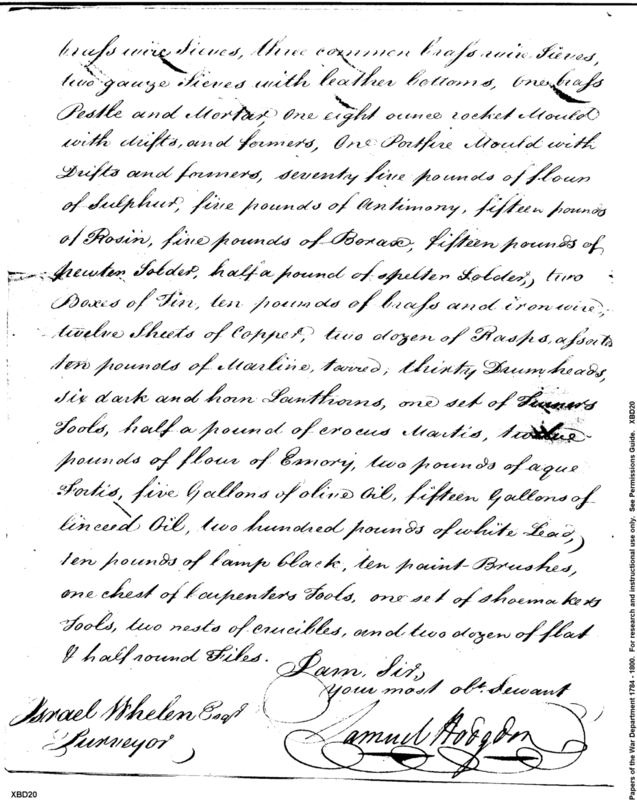 brass wire Sieves, three common brass wire Sieves,
two gauze Sieves with leather bottoms, One brass
Pestle and Mortar, One eight ounce rocket Mould
with drifts, and formers, One Portfire Mould with
Drifts and formers, seventy five pounds of flour
of Sulphur, five pounds of Antimony, fifteen pounds
of Rosin, five pounds of Borax, fifteen pounds of
pewter Solder, half a pound of spelter Solder, two
Boxes of Tin, ten pounds of brass and iron wire,
twelve Sheets of Copper, two dozen of Rasps, assortd
ten pounds of Marline, tarred, thirty Drum heads,
six dark and horn Lanthorns, one set of
Tools, half a pound of crocus Martis, twelve
pounds of flour of Emory, two pounds of aqua
Fortis, five Gallons of olive Oil, fifteen Gallons of
linceed Oil, two hundred pounds of white Lead,
ten pounds of lamp black, ten paint Brushes,
one chest of Carpenters Tools, one set of shoemakers
Tools, two nests of crucibles, and two dozen of flat
& half round Files.
I am, Sir,
your most obt. Servant
Samuel Hodgdon
Israel Whelen Esqr
Purveyor
XBD20
Papers of the War Department 1784 - 1800. For research and instructional use only. See Permissions Guide. XBD20